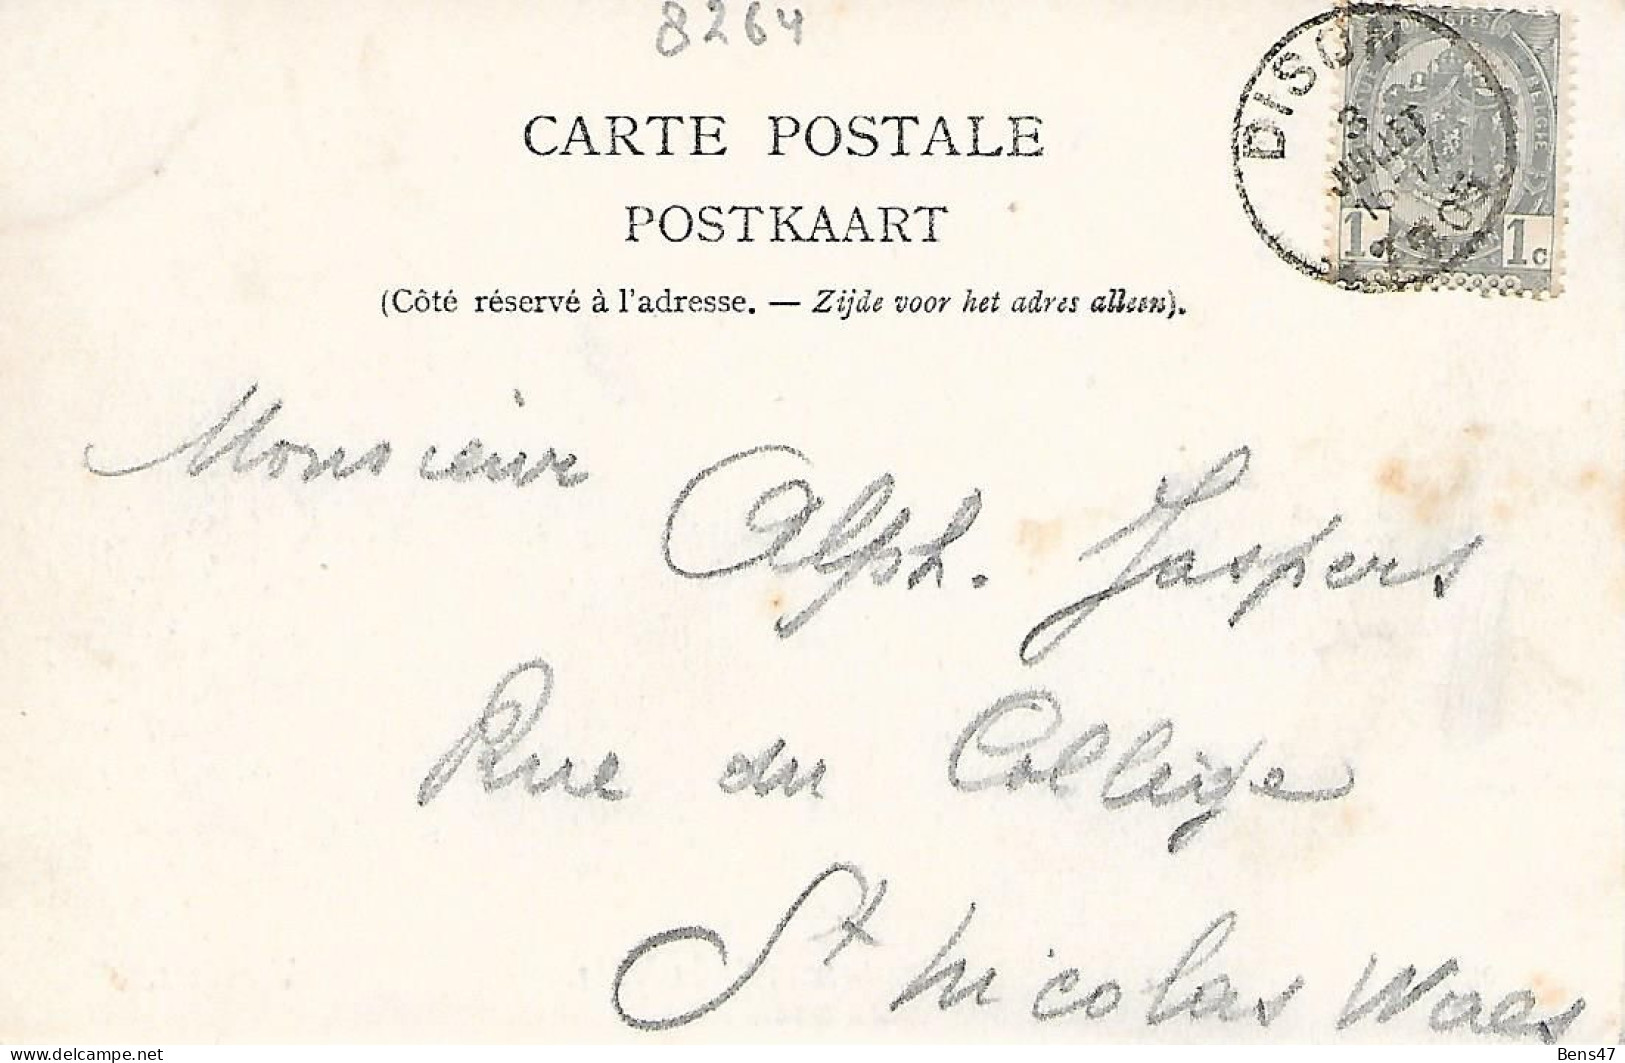 8264
CARTE POSTALE
POSTKAART
(Côté réservé à l'adresse. — Zijde voor het adres alleen).
DISON
3
JUILLET
1c 1c
BELGIE
Monsieur
Alph. Jaspers
Rue du Collège
St Nicolas Waes
Bens47